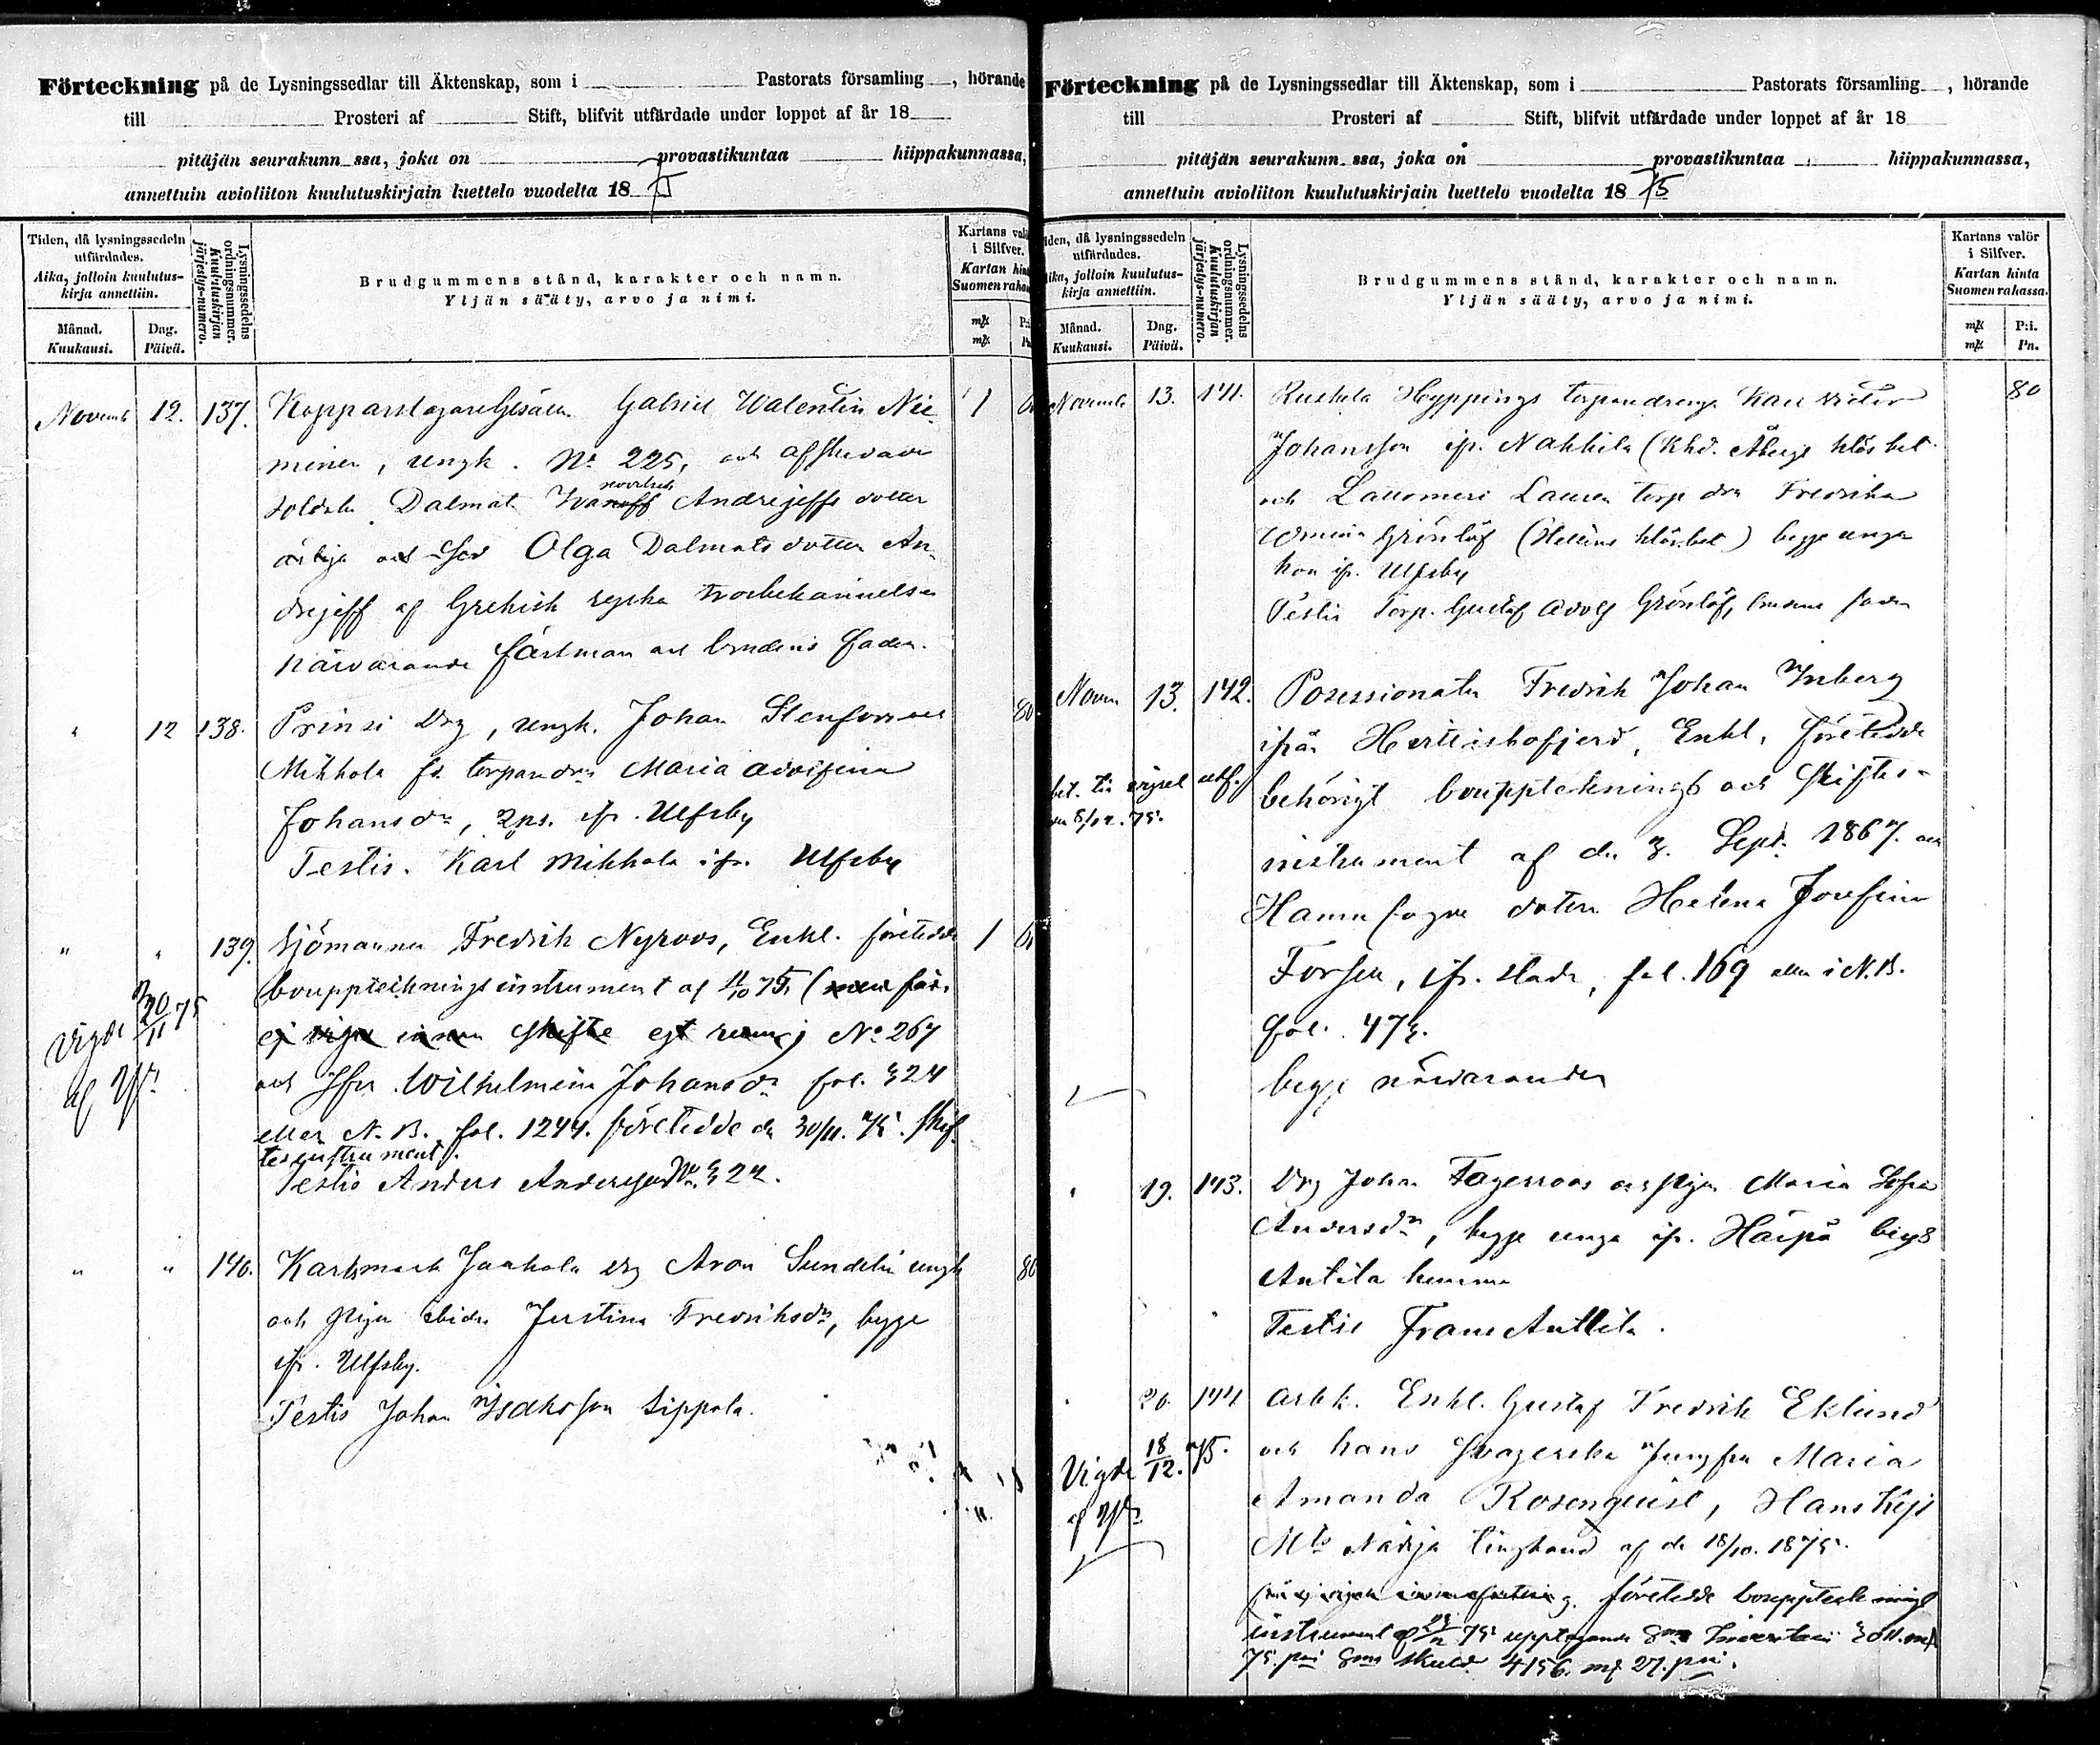 Förteckning på de Lysningssedlar till Äktenskap, som i Pastorats församling , hörande
till Prosteri af Stift, blifvit utfärdade under loppet af år 18
pitäjän seurakunn ssa, joka on provastikuntaa hiippakunnassa,
annettuin avioliiton kuulutuskirjain luettelo vuodelta 1875
Tiden, då lysningssedeln utfärdades.
Aika, jolloin kuulutus-kirja annettiin.
Månad.
Kuukausi.
Dag.
Päivä.
Lysningssedelns ordningsnummer.
Kuulutuskirjan järjestys-numero.
Brudgummens stånd, karakter och namn.
Yljän sääty, arvo ja nimi.
Kartans valör
i Silfver.
Kartan hinta
Suomen rahassa
Novemb 12. 137. Kopparslagare Gesällen Gabriel Walentin Nie-
minen, ungk. No 225, och afskedade
soldaten Dalmat Ivanoff Andrejeffs dotter
ärliga och Olga Dalmats dotter An-
drejeff af Grekisk ryska trosbekännelsen
närvarande fästman och brudens fader.
" 12 138. Prinsi Drg, ungk. Johan Stenforss och 80
Mikkola fd. torpare dr Maria Adolfina
Johansdr, ifr. Ulfsby
Testis. Karl Mikkola ifr. Ulfsby
" " 139. Sjömannen Fredrik Nyroos, Enkl. företedde 1
bouppteckningsinstrument af 75 (men får
ej viga innan skifte No 267
och Jfrn Wilhelmina Johansdr fol. 324
eller N.B. fol. 1244. företedde den 30/11. 75. skif-
tesinstrument.
Testis Anders Andersson No 322.
Vigde 30/11 75
af
" " 140. Karlsmark Jaakola drg Aron Sundelin ungk 80
och pigan ibidm Justina Fredriksdr, begge
ifr. Ulfsby.
Testis Johan Isaksson Sippola.
Förteckning på de Lysningssedlar till Äktenskap, som i Pastorats församling , hörande
till Prosteri af Stift, blifvit utfärdade under loppet af år 18
pitäjän seurakunn ssa, joka on provastikuntaa hiippakunnassa,
annettuin avioliiton kuulutuskirjain luettelo vuodelta 1875
Tiden, då lysningssedeln utfärdades.
Aika, jolloin kuulutus-kirja annettiin.
Månad.
Kuukausi.
Dag.
Päivä.
Lysningssedelns ordningsnummer.
Kuulutuskirjan järjestys-numero.
Brudgummens stånd, karakter och namn.
Yljän sääty, arvo ja nimi.
Kartans valör
i Silfver.
Kartan hinta
Suomen rahassa.
P:i.
Pn.
Novemb 13. 141. Ruskela Hyppings torpare drenge Karl Victor 80
Johansson ifr. Nakkila (Khd. Åbergs bet
och Lattomeri Lauren torp dr Fredrika
Wilhelmina Grönlöf begge unga
hon ifr. Ulfsby
Testis Torp. Gustaf Adolf Grönlöf, brudens fader
Novem 13. 142. Possessionaten Fredrik Johan Inberg
ifrån Herttishofjerd, Enkl. företedde
behörigt boupptecknings och skiftes-
instrument af den 3. Sept. 1867. och
Hamnfogde dottern Helena Josefina
Forssen, ifr. staden, fol. 169 eller i N.B.
fol. 473.
begge närvarande
bet. till vigsel utf.
den 8/12. 75.
" 19. 143. Drg Johan Fagerroos och pigan Maria Sofia
Andersdr, begge unga ifr. Harpä bys
Antila hemman
Testis Frans Anttila.
" 26. 144 arbk. Enkl. Gustaf Fredrik Eklund
och hans svägerska Jungfru Maria
Amanda Rosenqvist, Hans Kejs
Mts Nådiga af den 18/10. 1875.
företedde boupptecknings
instrument 75 upptagande
75. pni skuld 4156. mk 27. pni.
Vigde 18/12. 75.
af